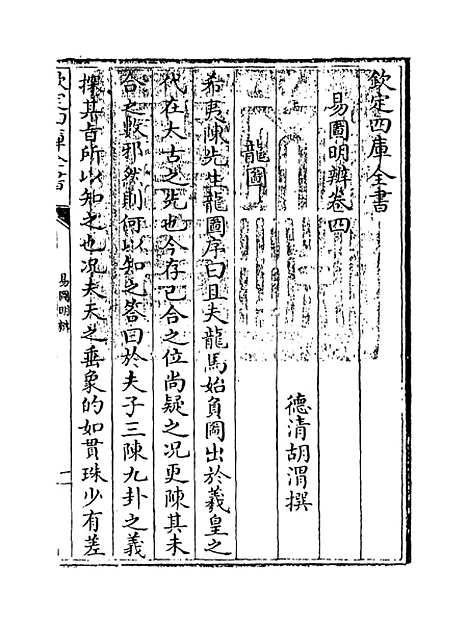 欽定四庫全書
易圖明辨卷四
德清胡渭撰
龍圖
希夷陳先生龍圖序曰且夫龍馬始負圖出於羲皇之
代在太古之先也今存已合之位尚疑之况更陳其未
合之數邪然則何以知之答曰於夫子三陳九卦之義
探其旨所以知之也况夫天之垂象的如貫珠少有差
欽定四庫全書
易圖明辨
一